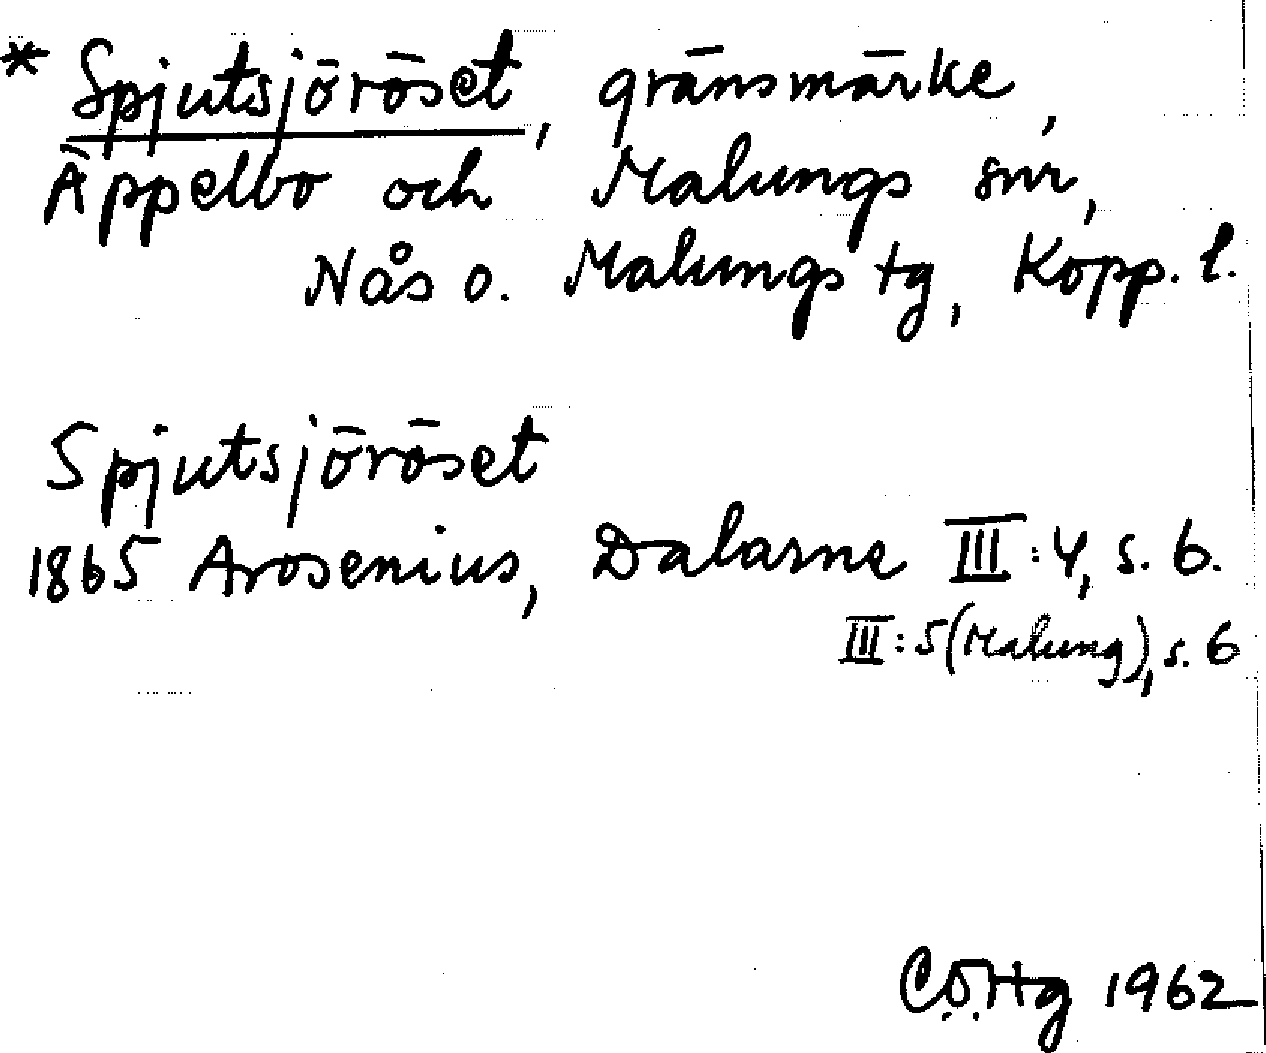 * Spjutsjöröset, gränsmärke,
Äppelbo och Malungs snr,
Nås o. Malungs tg, Kopp. l.
Spjutsjöröset
1865 Arosenius, Dalarne III:4, s. 6.
III:5 (Malung), s. 6
1962